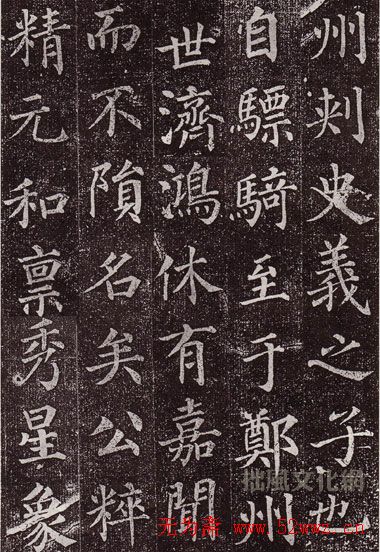 州刺史義之子也
自驃騎至于鄭州
世濟鴻休有嘉聞
而不隕名矣公粹
精元和禀秀星象
拙風文化網
无为斋 www.52wwz.cn